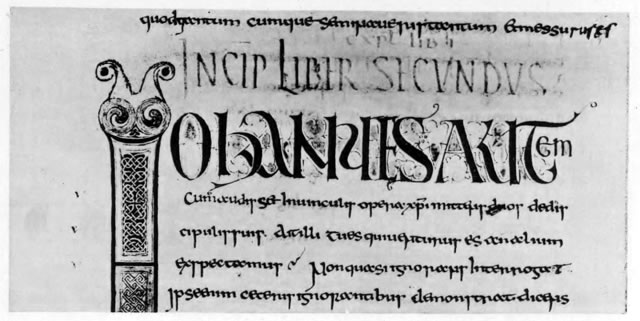 quodquantum cumque seminaueris tantum et messurus es
expl lib i
INCIP LIBER SECVNDVS
IOHANNES AUTem
Cum audisset Inuinculis opera xpi mittens duos dedis
cipulis suis. Ait illi tues quiuenturus es an alium
expectamus Non quasi ignorans Interrogat
Ipse enim ceteris ignorantibus demonstrat dicens